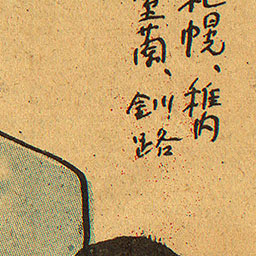 札幌、稚内
室蘭、釧路